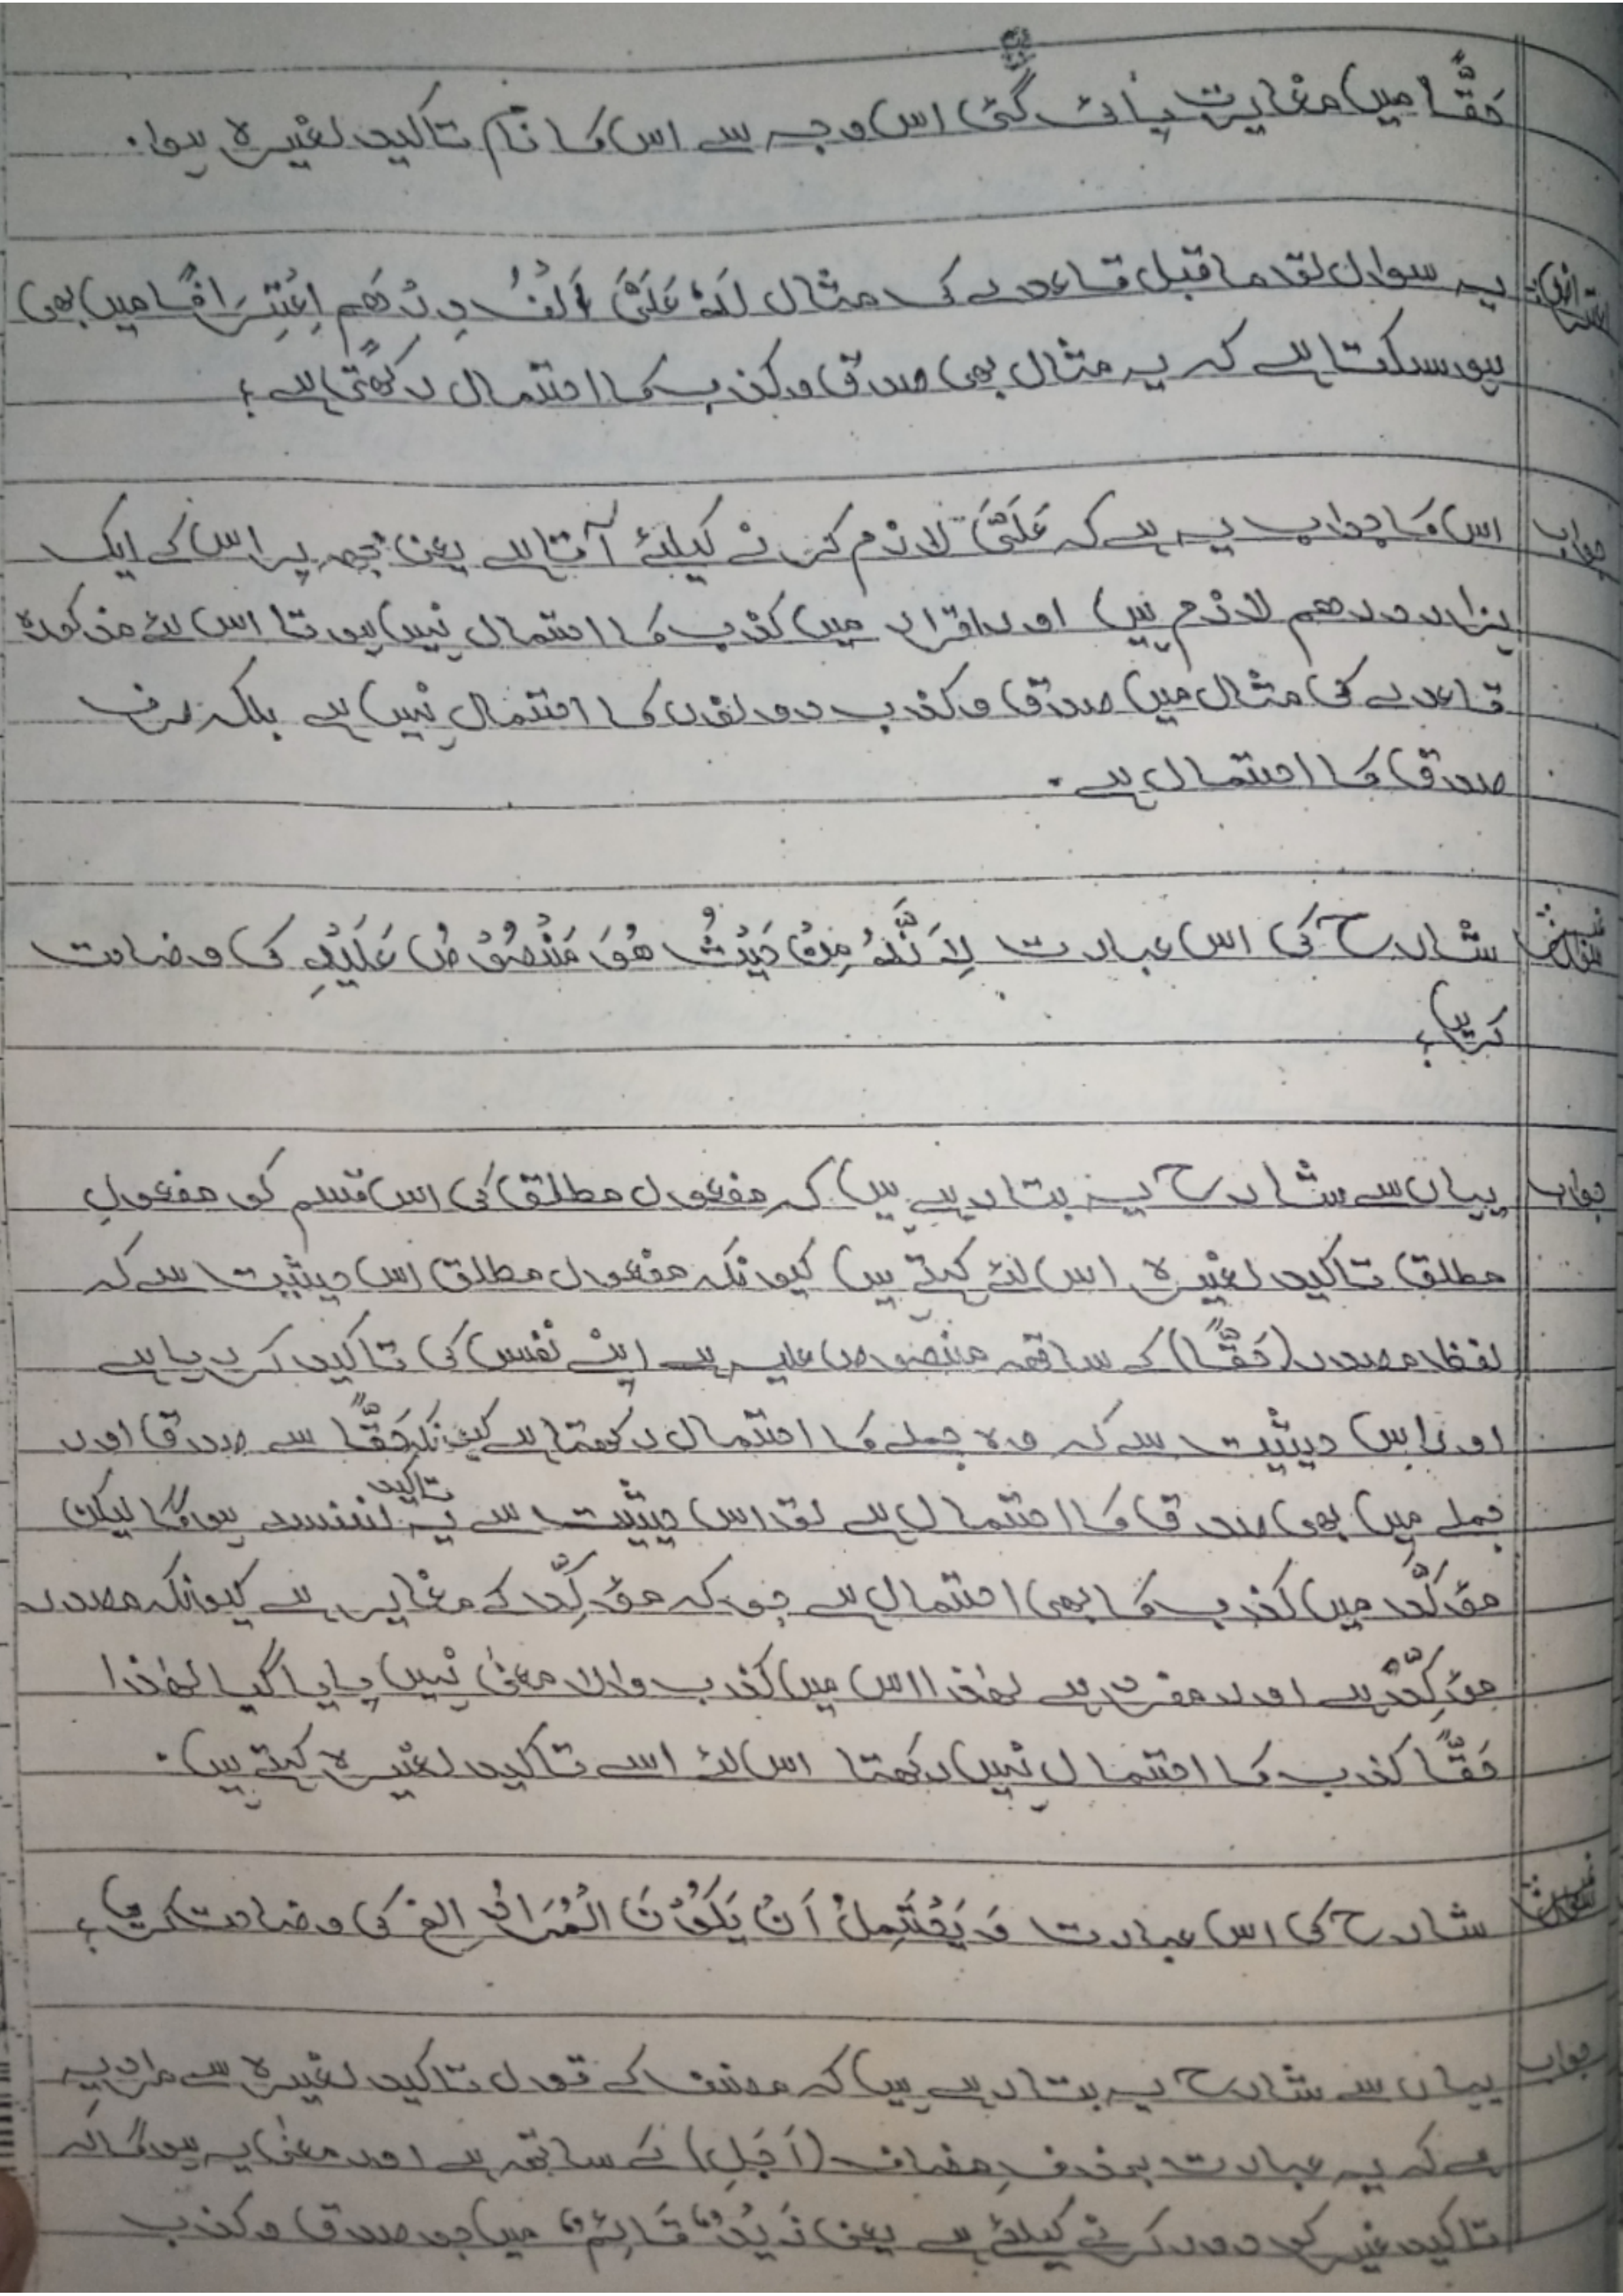 حَقًّا میں مغایرت پائی گئی اس وجہ سے اس کا نام تاکید لغیرہ ہوا۔
اعتراض: یہ سوال تو ما قبل قاعدے کی مثال لَهٗ عَلَیَّ اَلْفُ دِرْھَم اِعْتِرَافًا میں بھی
ہو سکتا ہے کہ یہ مثال بھی صدق و کذب کا احتمال رکھتی ہے؟
جواب اس کا جواب یہ ہے کہ عَلَیَّ لازم کرنے کیلئے آتا ہے یعنی مجھ پر اس کے ایک
ہزار درھم لازم ہیں اور اقرار میں کذب کا احتمال نہیں ہوتا اس لئے مذکورہ
قاعدے کی مثال میں صدق و کذب دونوں کا احتمال نہیں ہے بلکہ صرف
صدق کا احتمال ہے۔
شارح کی اس عبارت لِاَنَّهٗ مِنْ حَیْثُ ھُوَ مَنْصُوْصٌ عَلَیْهِ کی وضاحت
کریں؟
جواب یہاں سے شارح یہ بتا رہے ہیں کہ مفعول مطلق کی اس قسم کو مفعولِ
مطلق تاکید لغیرہ اس لئے کہتے ہیں کیونکہ مفعول مطلق اس حیثیت سے کہ
لفظ مصدر (حَقًّا) کے ساتھ منصوص علیہ ہے اپنے نفس کی تاکید کر رہا ہے
اور اس حیثیت سے کہ وہ جملے کا احتمال رکھتا ہے کیونکہ حَقًّا سے صدق اور
جملے میں بھی صدق کا احتمال ہے تو اس حیثیت سے یہ تاکید لنفسہ ہوگا لیکن
مؤکَّد میں کذب کا بھی احتمال ہے جو کہ مؤکِّد کے مغایر ہے کیونکہ مصدر
مؤکِّد ہے اور مفرد ہے لھٰذا اس میں کذب والا معنیٰ نہیں پایا گیا لھٰذا
حَقًّا کذب کا احتمال نہیں رکھتا اس لئے اسے تاکید لغیرہ کہتے ہیں۔
شارح کی اس عبارت وَ یَحْتَمِلُ اَنْ یَکُوْنَ الْمُرَادُ الخ کی وضاحت کریں؟
جواب یہاں سے شارح یہ بتا رہے ہیں کہ مصنف کے قول تاکید لغیرہ سے مراد یہ
ہے کہ یہ عبارت بحذفِ مضاف (اَجَلِ) کے ساتھ ہے اور معنیٰ یہ ہوگا کہ
تاکید غیر کو دور کرنے کیلئے ہے یعنی زَیْدٌ قَائِمٌ میں جو صدق و کذب